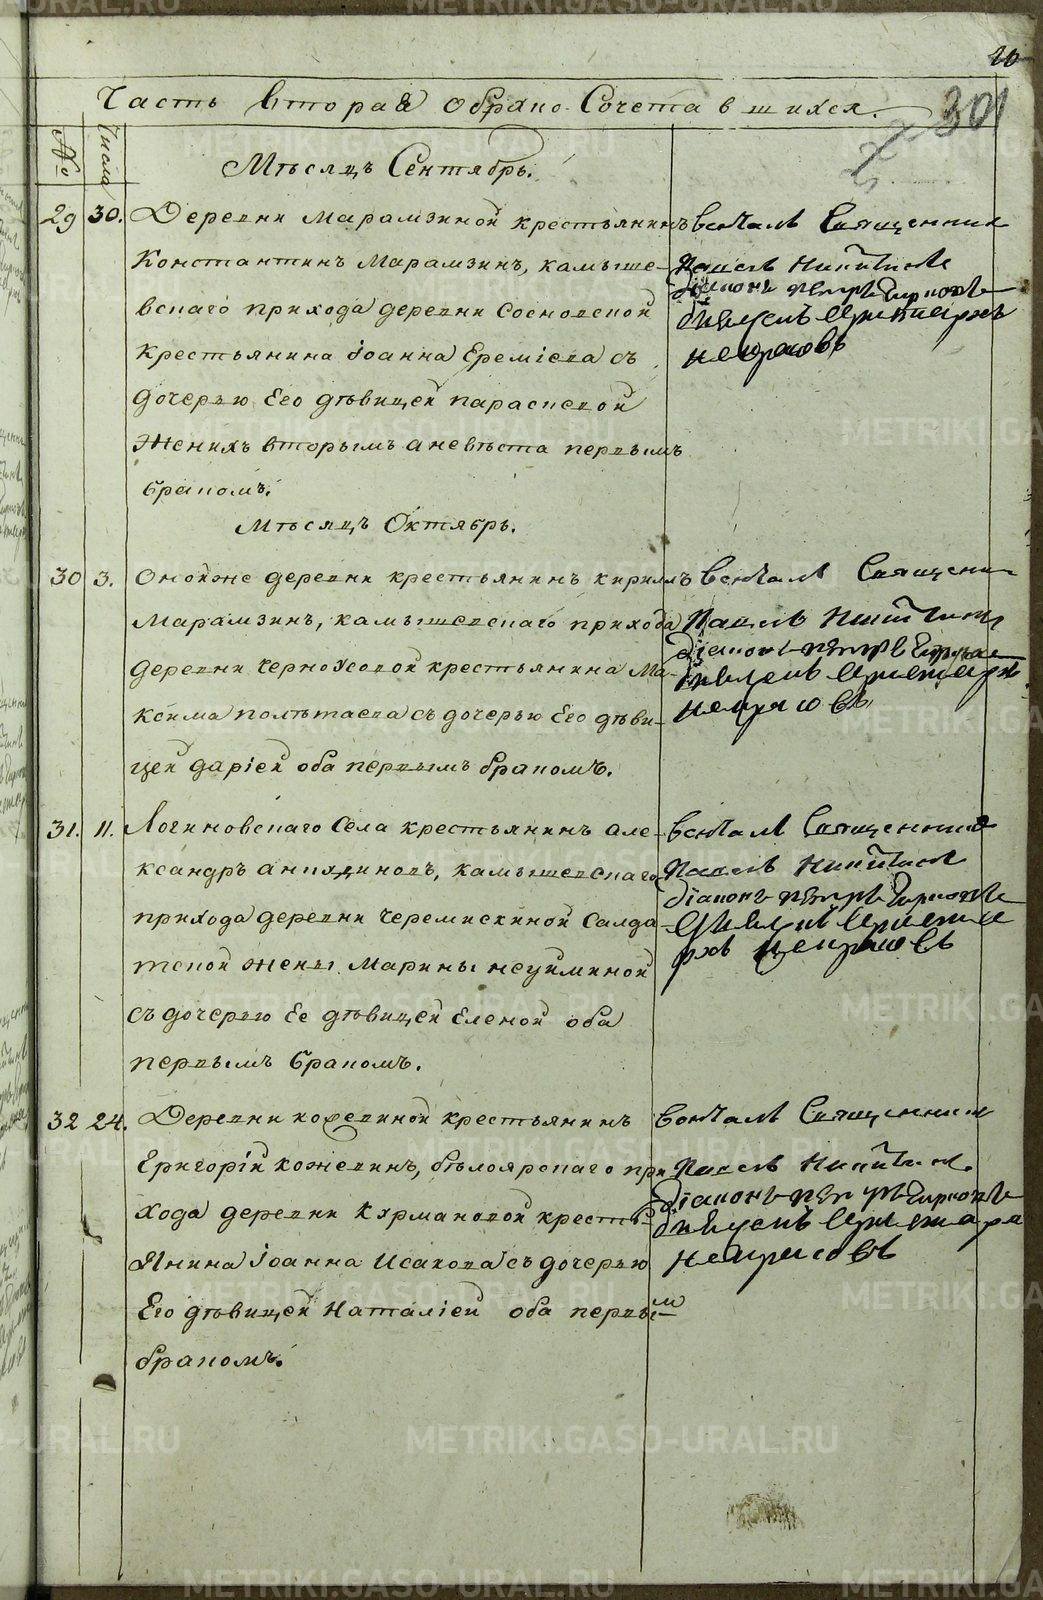 20
Часть вторая о брако Сочетавшихся.
301
№
Числа
Мѣсяцъ Сентябрь.
29 30. Деревни Марамзиной крестьянинъ
Константинъ Марамзинъ, камыше-
вскаго прихода деревни Сосновской
крестьянина Іоанна Еремѣева съ
дочерью Его дѣвицей Параскевой
Женихъ вторымъ а невѣста первымъ
бракомъ.
венчалъ Священник
Павелъ Никити
діаконъ Петръ
Некрасовъ
Мѣсяцъ Октябрь.
30 3. Оной же деревни крестьянинъ кириллъ
Марамзинъ, камышевскаго прихода
деревни Черноусовой крестьянина Ма-
ксима полѣтаева съ дочерью Его дѣви-
цей даріей оба первымъ бракомъ.
венчалъ Священи
Павелъ Никити
діаконъ Петръ
Некрасовъ
31. 11. Логиновскаго Села крестьянинъ але-
ксандръ Камышевскаго
прихода деревни Черемискиной Салда
тской жены Марины неуйминой
съ дочерью Ее дѣвицей Еленой оба
первымъ бракомъ.
венчалъ Священник
Павелъ Никити
діаконъ Петръ
рхъ Некрасовъ
32 24. Деревни крестьянинъ
Григорій кожевинъ, бѣлоярскаго при
хода деревни Курмановой кресть-
янина Іоанна Исакова съ дочерью
Его дѣвицей Наталіей оба первым
бракомъ.
венчалъ Священник
Павелъ Никити
діаконъ Петръ
Некрасовъ
METRIKI.GASO-URAL.RU